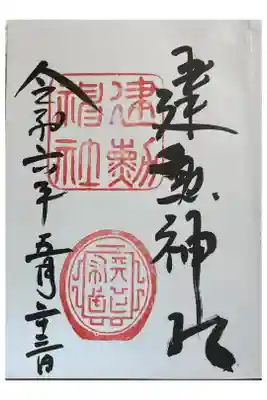 建勲神社
建勳
神社
令和六年五月二十三日